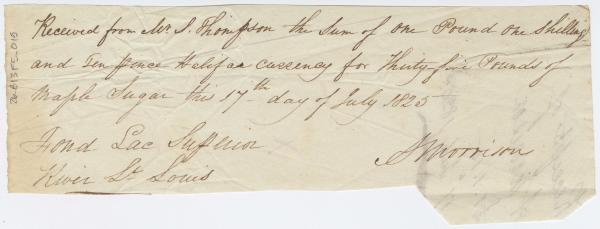 Received from Mr. J. Thompson the Sum of one Pound one Shilling
and Ten Pence Halifax currency for Thirty five Pounds of
Maple Sugar this 17th day of July 1825
Fond Lac Superior
River St. Louis
Morrison